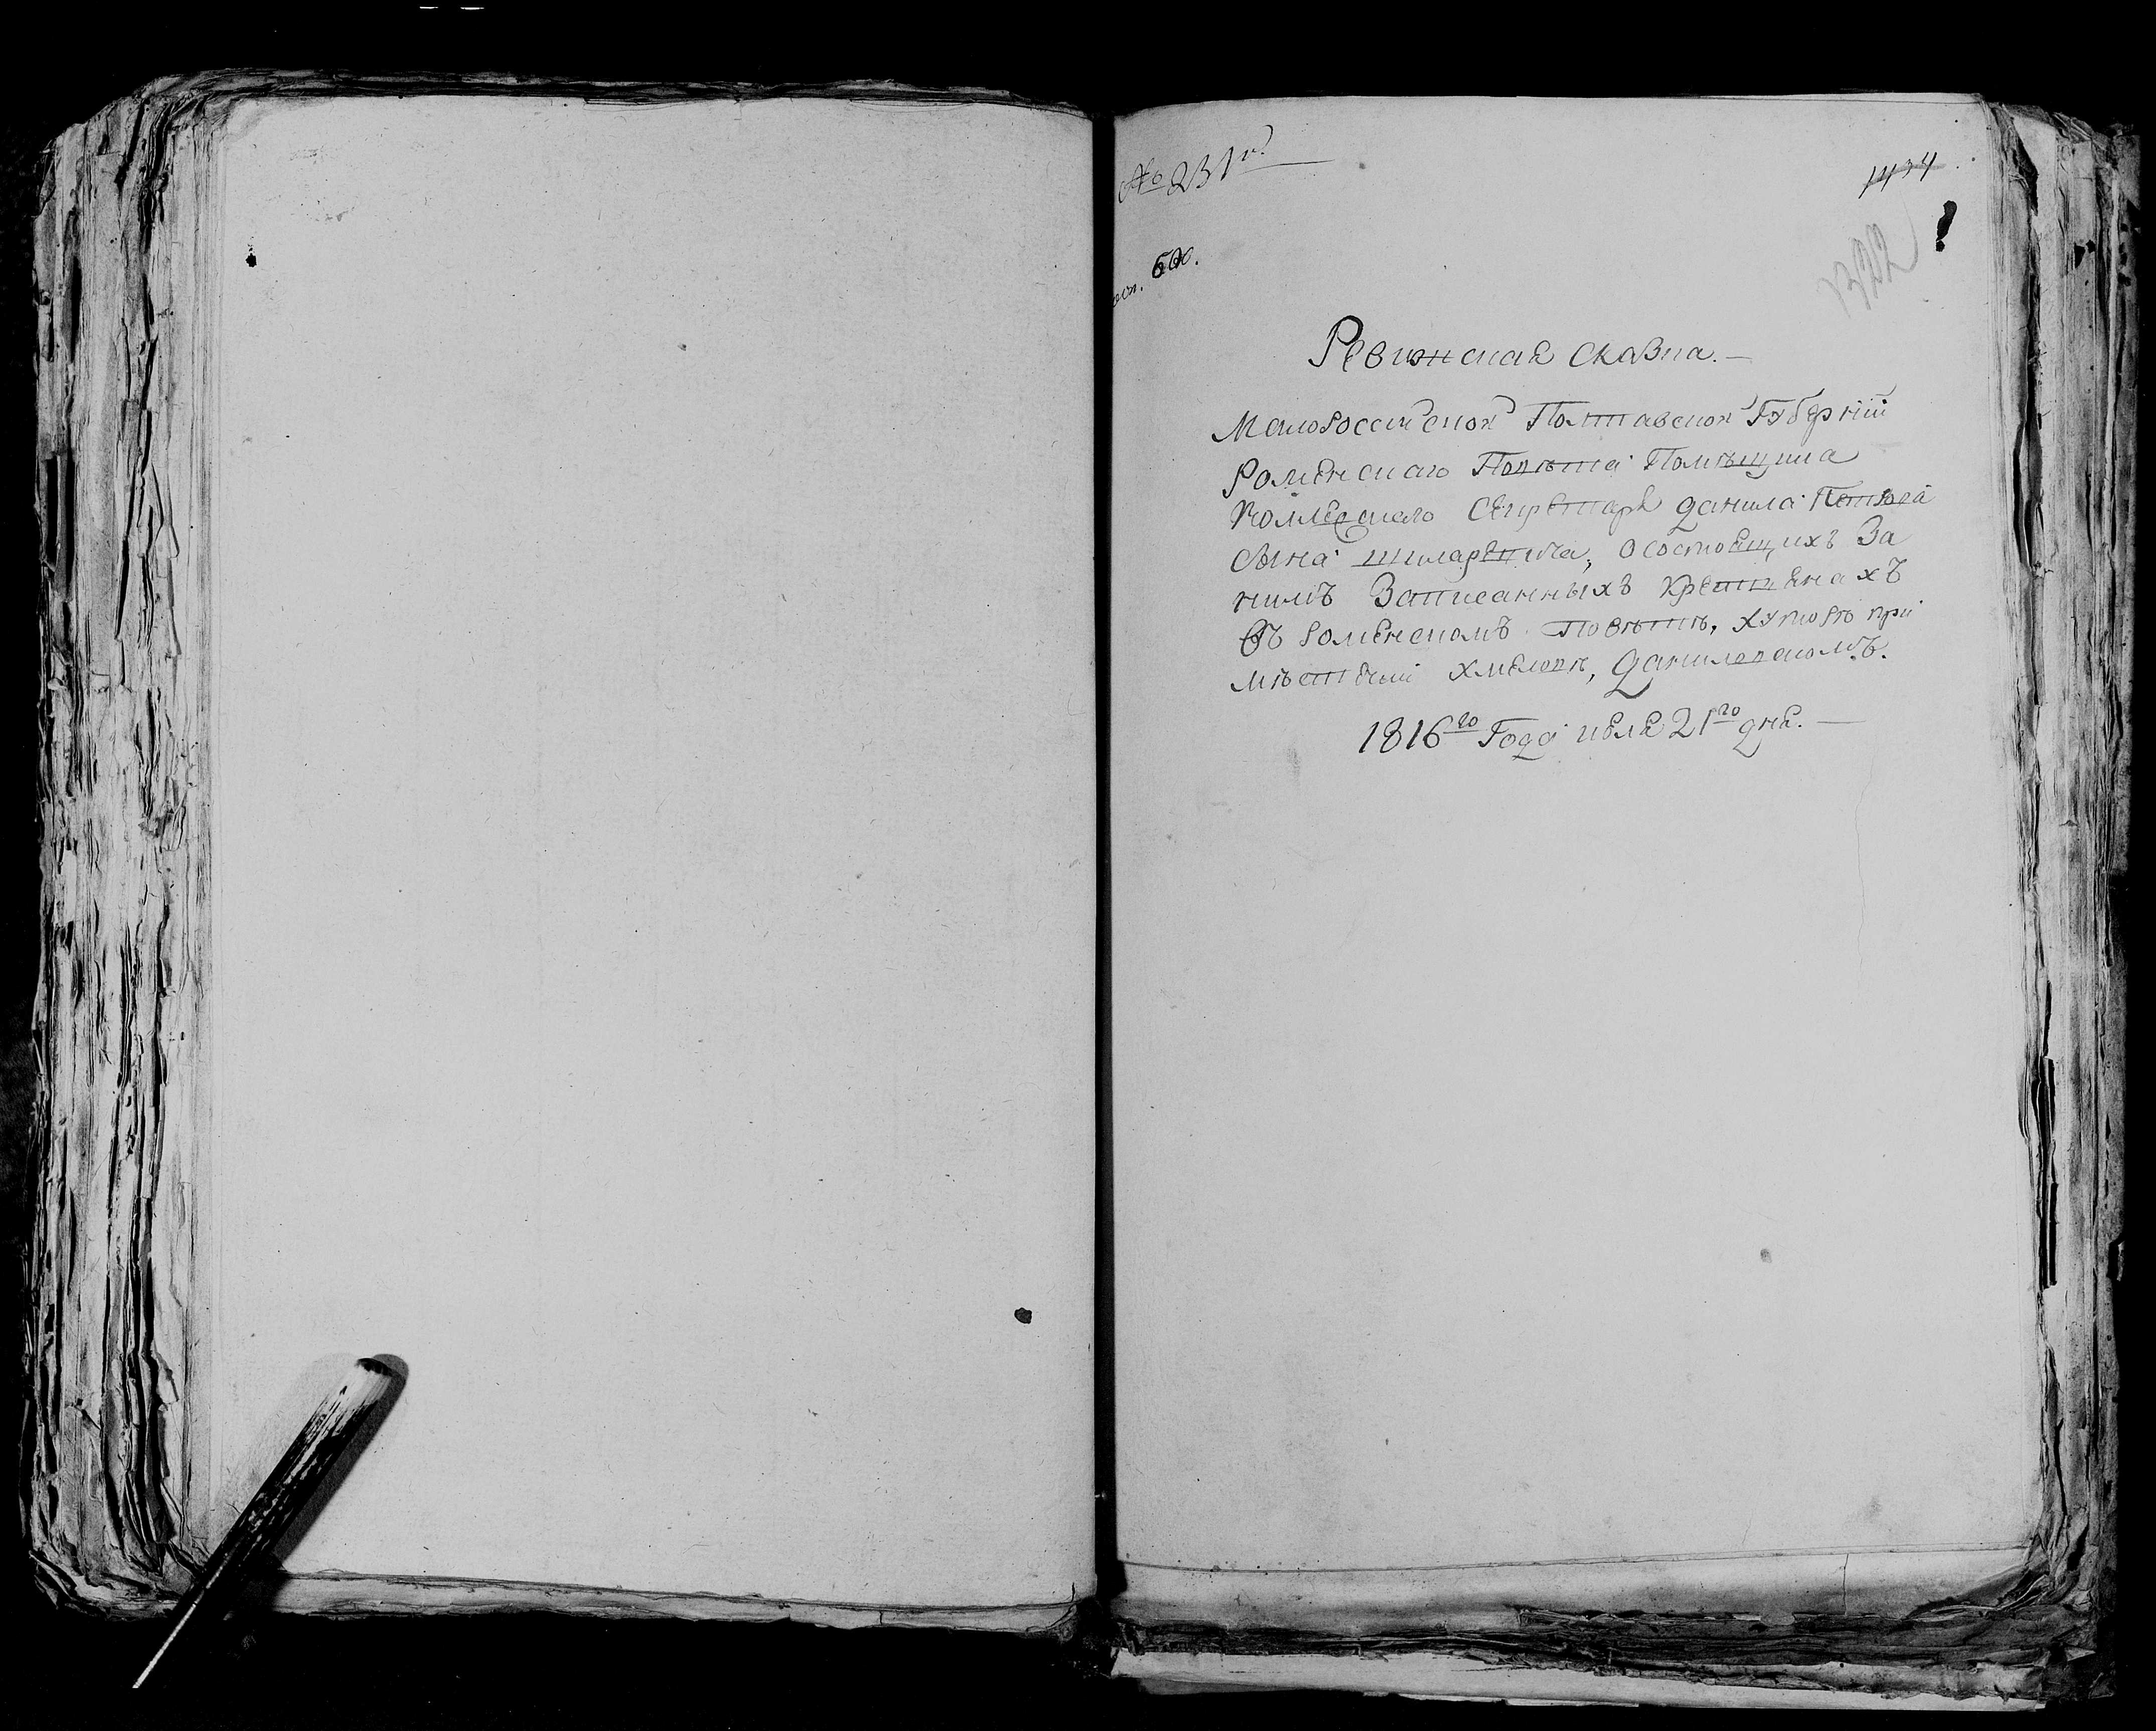 № 231й
1434
1322
Ревизская сказка.—
Малороссийской Полтавской Губернїи
Роменскаго Повѣта Помѣщика
Коллеского Секретаря данила Петрова
сына шкларевича, о состоящихъ За
нимъ Записанныхъ крестянахъ
въ роменскомъ повѣтѣ, хуторѣ при
мѣстечки хмеловѣ, Даниловскомъ.
1816го Года июля 21го дня.—